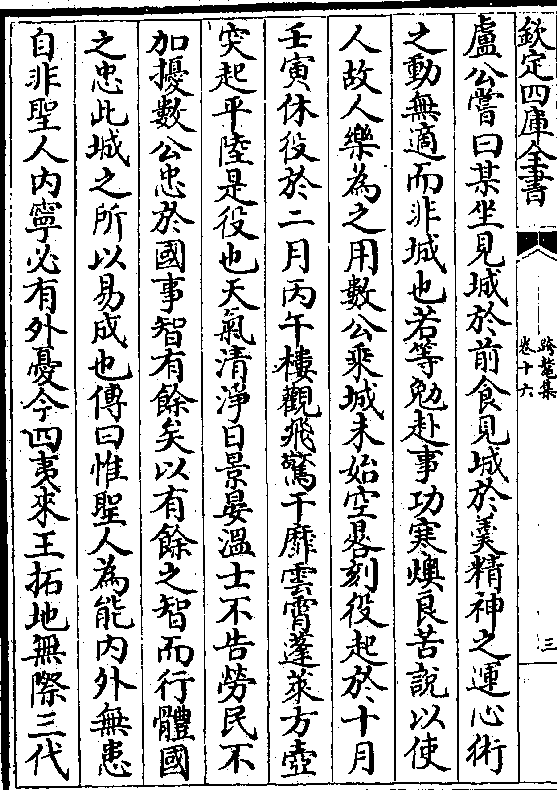 欽定四庫全書
跨鼇集
卷十六
三
盧公嘗曰某坐見城於前食見城於羮精神之運心術
之動無適而非城也若等勉赴事功寒燠良苦說以使
人故人樂為之用數公乘城未始空晷刻役起於十月
壬寅休役於二月丙午樓觀飛驚干靡雲霄蓬萊方壺
突起平陸是役也天氣清淨日景晏溫士不告勞民不
加擾數公忠於國事智有餘矣以有餘之智而行體國
之忠此城之所以易成也傳曰惟聖人為能内外無患
自非聖人内寧必有外憂今四夷來王拓地無際三代